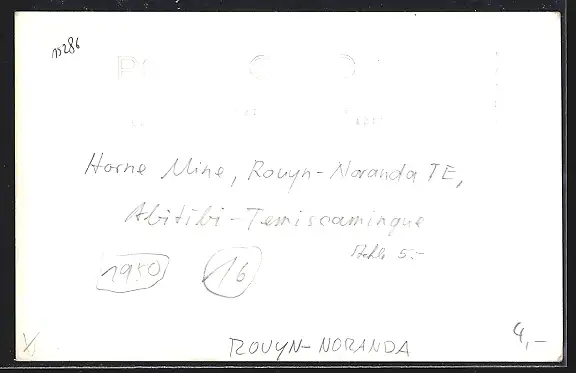 15286
Horne Mine, Rouyn-Noranda TE,
Abitibi-Temiscamingue
5.-
1950 16
ROUYN-NORANDA
4,-